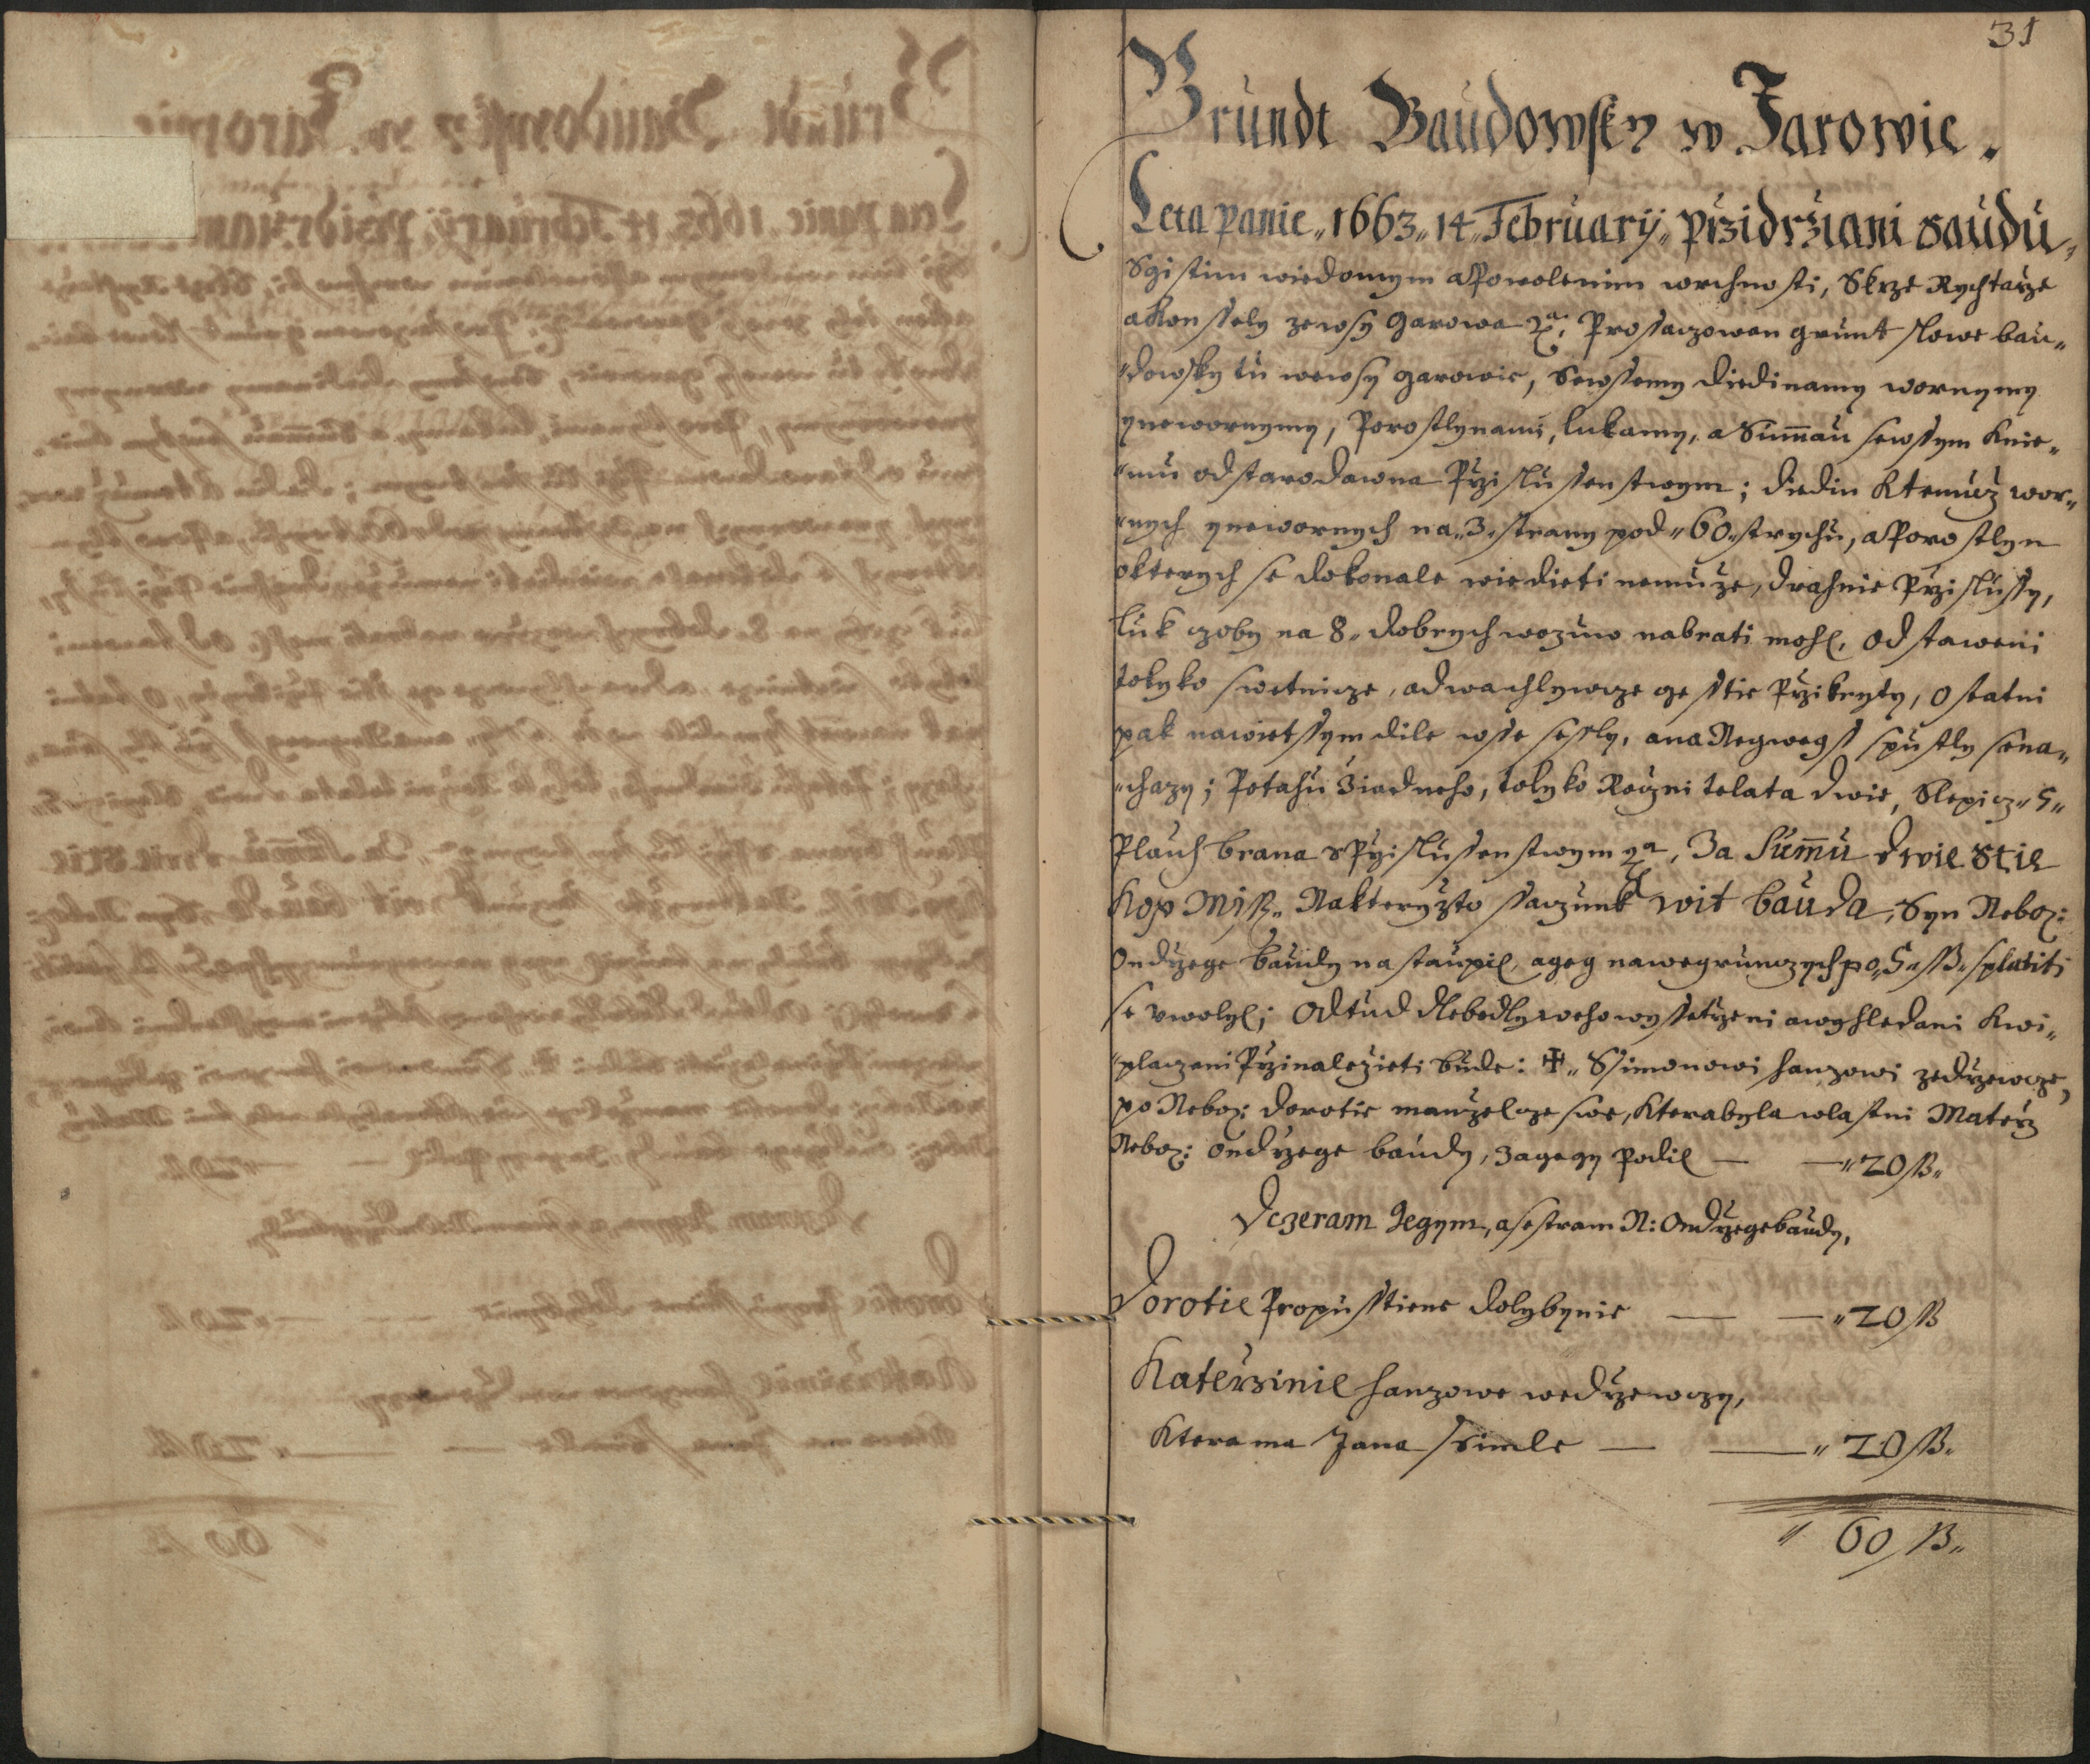 31
Grundt Baudowsky w Jarowie.
Leta panie„ 1663„ 14„ Februarÿ„ przidrżiani saudu„
Sgistim wiedomym a Powolenim wrchnosti, Skrze Rychtarze
a Konssely zewsy Garowa ꝛa: Prossaczowan grunt slowe bau„
„dowsky tu wewsy Garowie, Sewssemy diedinamy wornymy
ynewornymy, Porostlynami, lukamy, a Summau sewssym knie„
„mu odstarodawna Przislussenstwym; diedin Ktemuz wor„
„nych ynewornych na„3„strany pod„60„strychu, a Porostlyn
okterych se dokonale wiedieti nemuze, drahnie Przislussy,
luk czoby na 8„ dobrych wozuw nabrati mohl, od staweni
tolyko swetnicze, a dwa chlywcze gesstie Przikryty, ostatni
pak nawietssym dile wsse sessly, ana Neywegss spustly sena„
„chazy; Potahu Ziadneho, tolyko Roczni telata dwie, Slepicz„5„
Plauh brana s Przislussenstwym ꝛa, Za Summu dwie stie
Kop Miß„ Nakteryżto ssaczunk wit bauda, Syn Neboz:
Ondrzege baudy nastaupil, a geg nawegrunczych po„5„ß„ splatiti
se uwolyl; Odtud Nebedlyweho wyssetrzeni a wyhledani Kwi„
„placzeni Przinalezieti bude: ✠„ Ssimonowi hanzowi zedrzewcze,
po Neboz: dorotie manzelcze swe, Kterabyla wlastni Materz
Neboz: Ondrzege baudy, zagegy Podil — —„20 ß„
Dczeram Gegym, a sestram N: Ondrzege baudy,
Dorotie Propusstiene dolybynie — —„20 ß
Katerzinie hanzowe wedrzewczy,
Ktera ma Jana Ssimle — —„ 20 ß„
„ 60 ß„